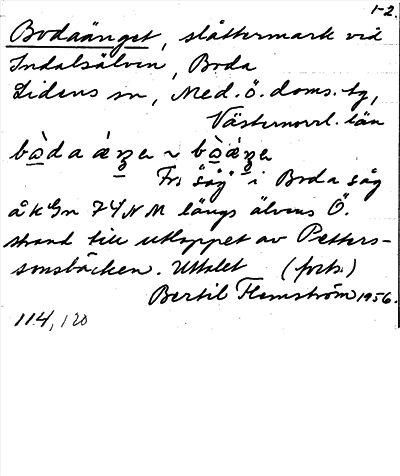 1-2.
Bodaänget, slåttermark vid
Indalsälven, Boda
Lidens sn, Med. Ö. doms. tg,
Västernorrl. län
Fr. "såg" i Boda såg
längs älvens Ö.
strand till utloppet av Petters-
sonsbäcken. Uttalet (forts.)
Bertil Flemström 1956.
114, 120